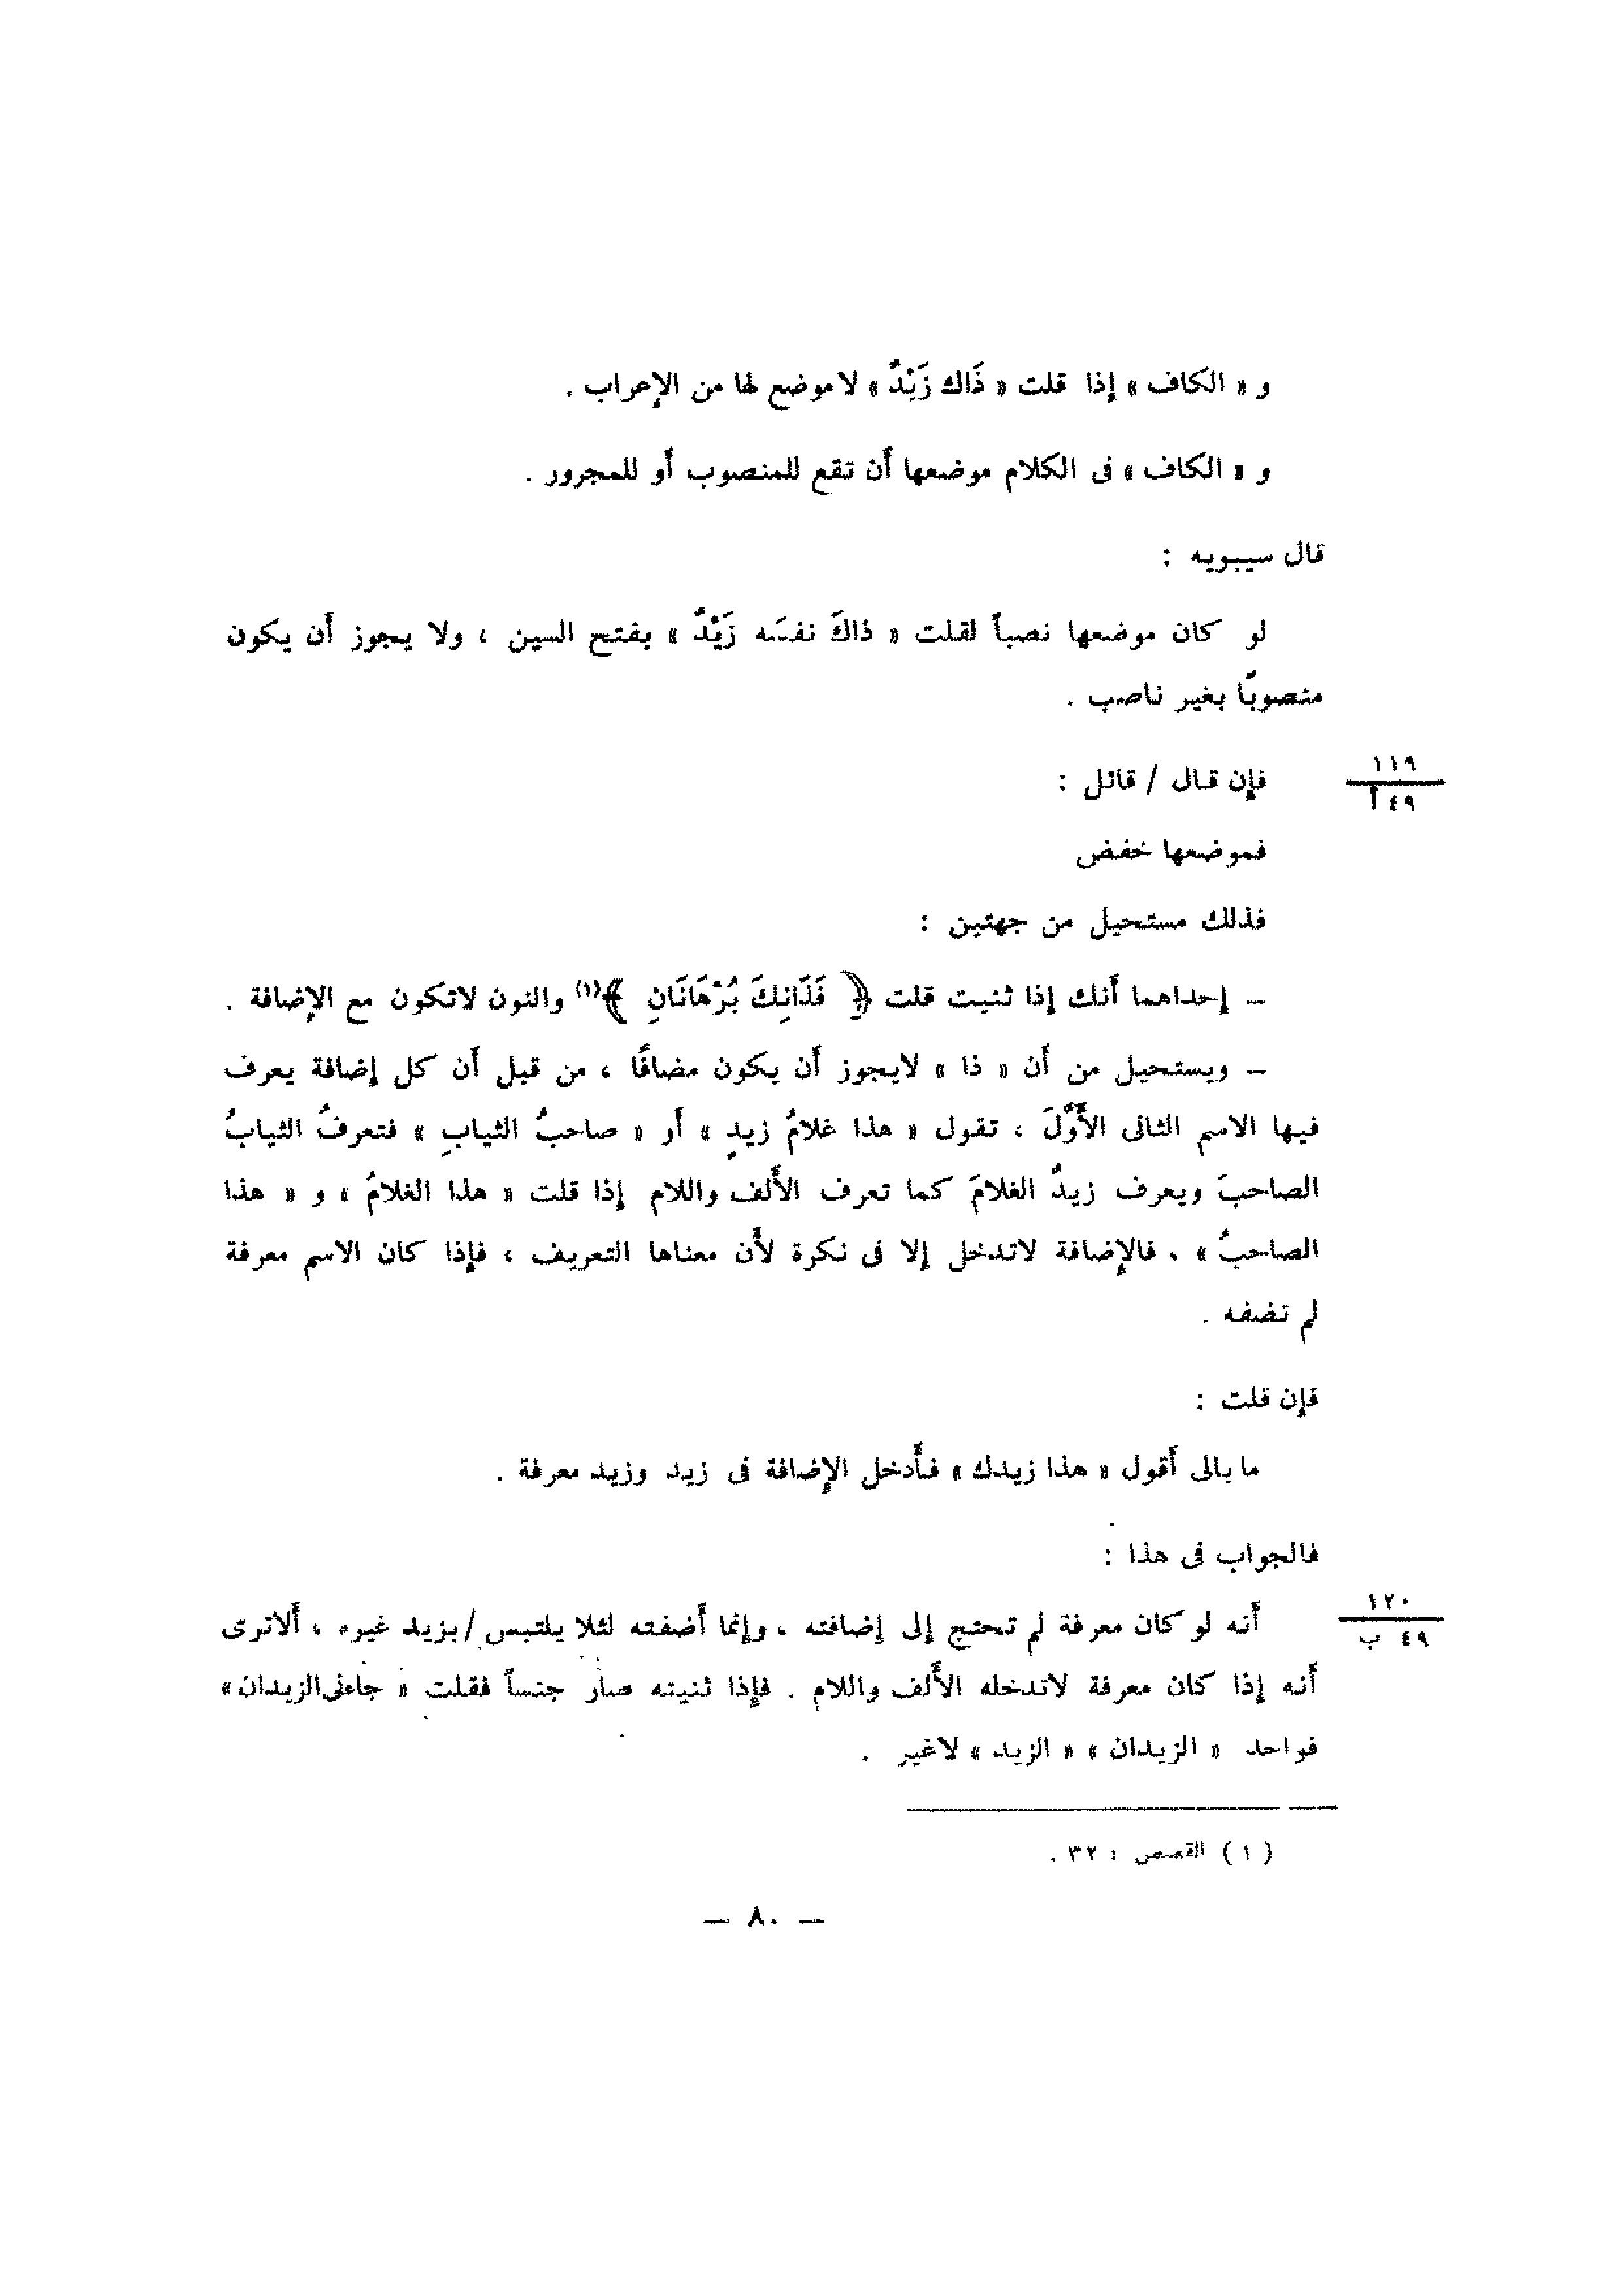 و « الكاف » إذا قلت « ذَاك زَيْدٌ » لاموضع لها من الإعراب .
و « الكاف » فى الكلام موضعها أَن تقع للمنصوب أَو للمجرور .
قال سيبويه :
لو كان موضعها نصباً لقلت « ذاكَ نفسَه زَيْدٌ » بفتح السين ، ولا يجوز أَن يكون
منصوبًا بغير ناصب .
١١٩
٤٩ أ
فإن قال / قائل :
فموضعها خفض
فذلك مستحيل من جهتين :
– إحداهما أَنك إذا ثنيت قلت ﴿ فَذَانِكَ بُرْهَانَانِ ﴾(١) والنون لاتكون مع الإضافة .
– ويستحيل من أَن « ذا » لايجوز أَن يكون مضافًا ، من قبل أَن كل إضافة يعرف
فيها الاسم الثانى الأَوَّلَ ، تقول « هذا غلامُ زيدٍ » أَو « صاحبُ الثيابِ » فتعرفُ الثيابُ
الصاحبَ ويعرف زيدٌ الغلامَ كما تعرف الأَلف واللام إذا قلت « هذا الغلامُ » و « هذا
الصاحبُ » . فالإضافة لاتدخل إلا فى نكرة لأَن معناها التعريف ، فإذا كان الاسم معرفة
لم تضفه .
فإن قلت :
ما بالى أَقول « هذا زيدك » فأَدخل الإضافة فى زيد وزيد معرفة .
فالجواب فى هذا :
١٢٠
٤٩ ب
أَنه لو كان معرفة لم تحتج إلى إضافته ، وإنما أَضفته لئلا يلتبس / بزيد غيره ، أَلاترى
أَنه إذا كان معرفة لاتدخله الأَلف واللام . فإذا ثنيته صار جنساً فقلت « جاءنى الزيدان »
فواحد « الزيدان » « الزيد » لاغير .
( ١ ) القصص : ٣٢ .
– ٨٠ –